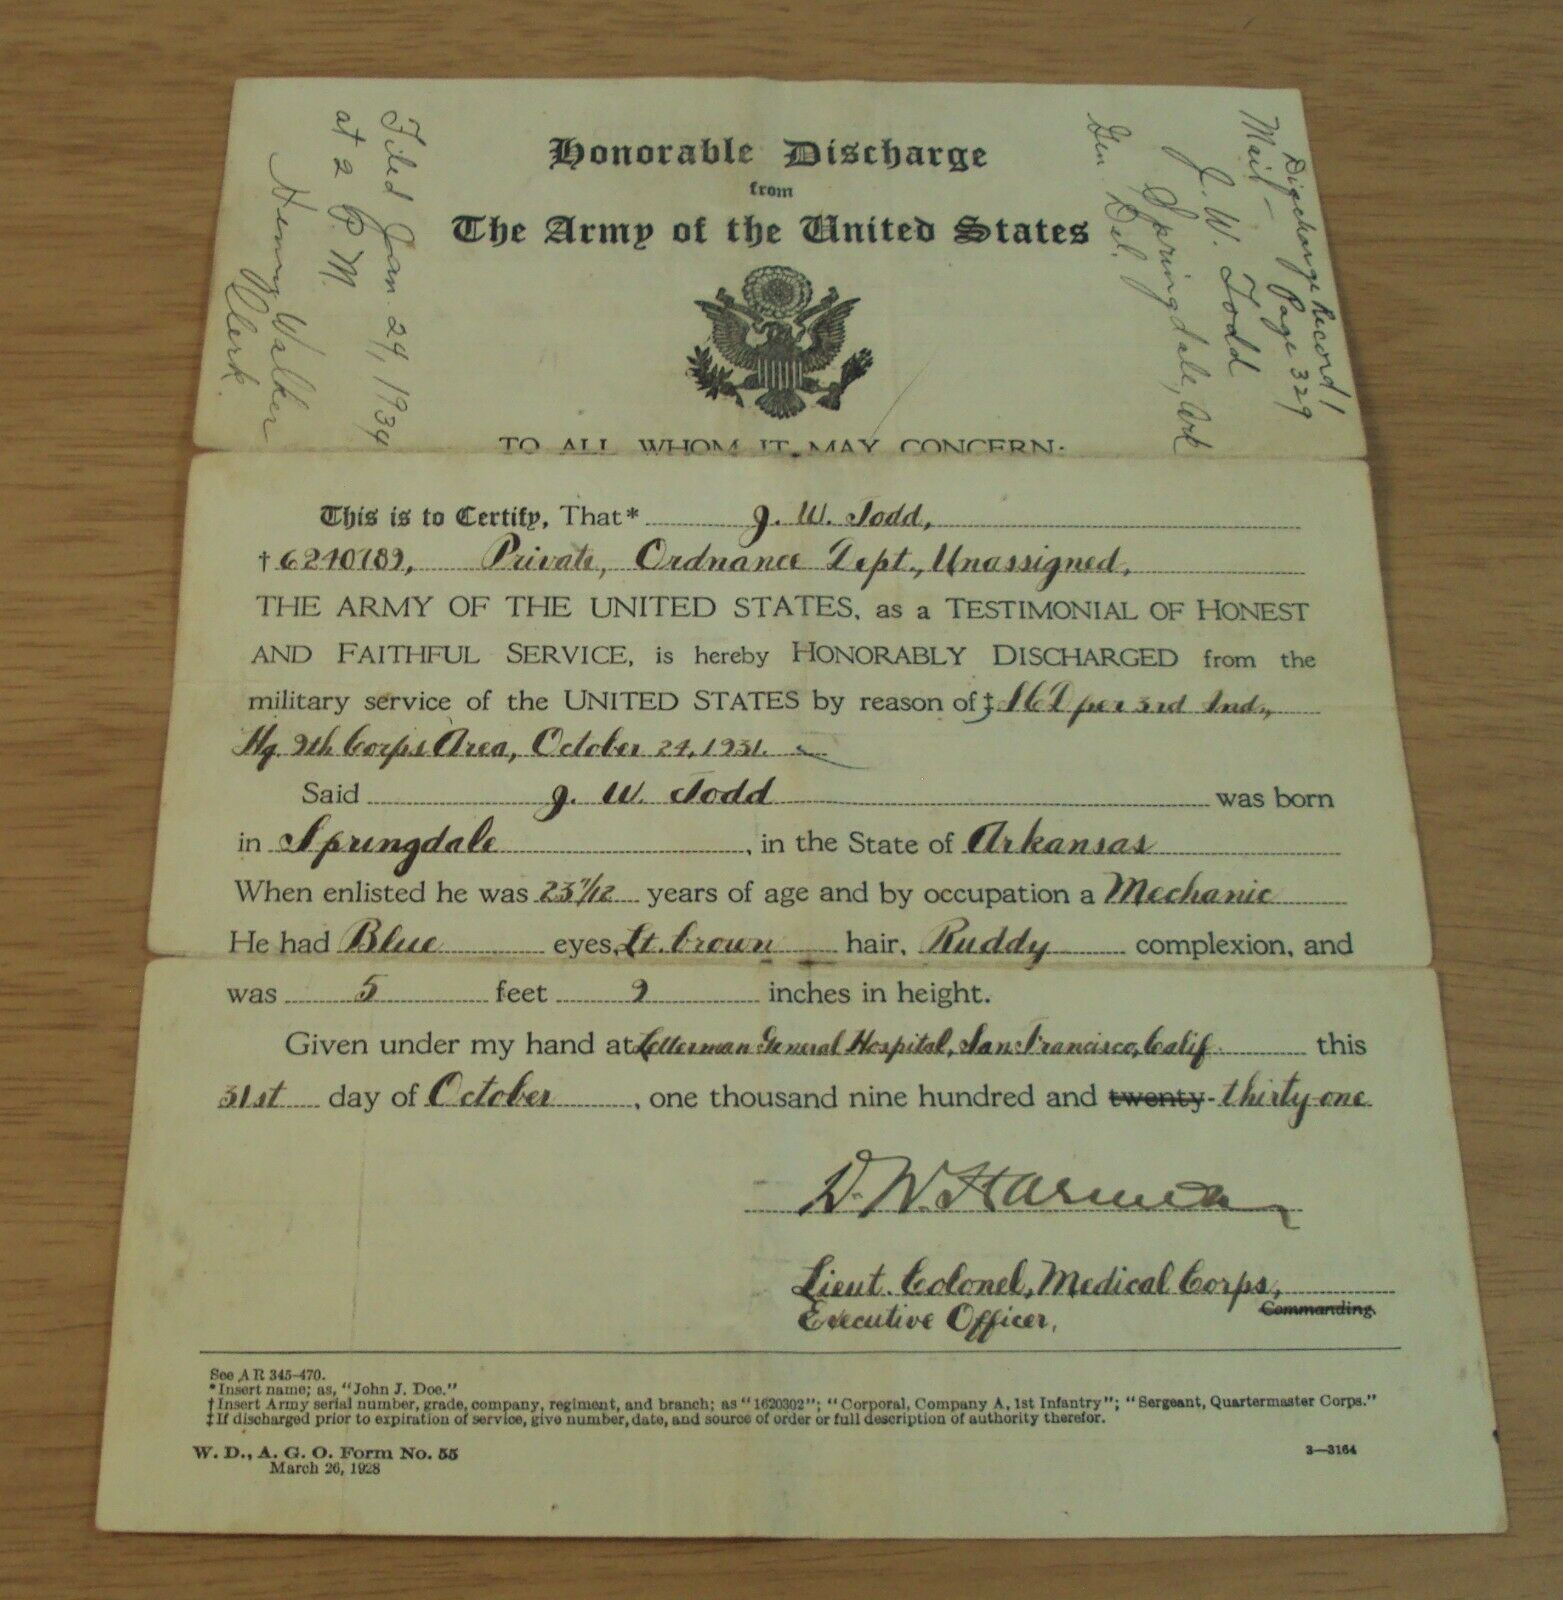 Filed Jan. 24, 1934
at 2 P. M.
Henry Walker
Clerk.
Discharge Record 1
Page 329
Mail -
J. W. Todd
Springdale, Ark
Gen Del.
Honorable Discharge
from
The Army of the United States
TO ALL WHOM IT MAY CONCERN:
This is to Certify, That* J. W. Todd,
† 6240789, Private, Ordnance Dept., Unassigned,
THE ARMY OF THE UNITED STATES, as a TESTIMONIAL OF HONEST
AND FAITHFUL SERVICE, is hereby HONORABLY DISCHARGED from the
military service of the UNITED STATES by reason of ‡ per 3rd Ind.,
Hq. 9th Corps Area, October 24, 1931.
Said J. W. Todd was born
in Springdale, in the State of Arkansas
When enlisted he was 23 7/12 years of age and by occupation a Mechanic
He had Blue eyes, Lt. brown hair, Ruddy complexion, and
was 5 feet 9 inches in height.
Given under my hand at Letterman General Hospital, San Francisco, Calif. this
31st day of October, one thousand nine hundred and twenty- thirty-one
D. W. Harmon
Lieut. Colonel, Medical Corps,
Commanding.
Executive Officer,
See AR 345-470.
*Insert name; as, "John J. Doe."
†Insert Army serial number, grade, company, regiment, and branch; as "1620302"; "Corporal, Company A, 1st Infantry"; "Sergeant, Quartermaster Corps."
‡If discharged prior to expiration of service, give number, date, and source of order or full description of authority therefor.
W. D., A. G. O. Form No. 55
March 26, 1928
3—3164